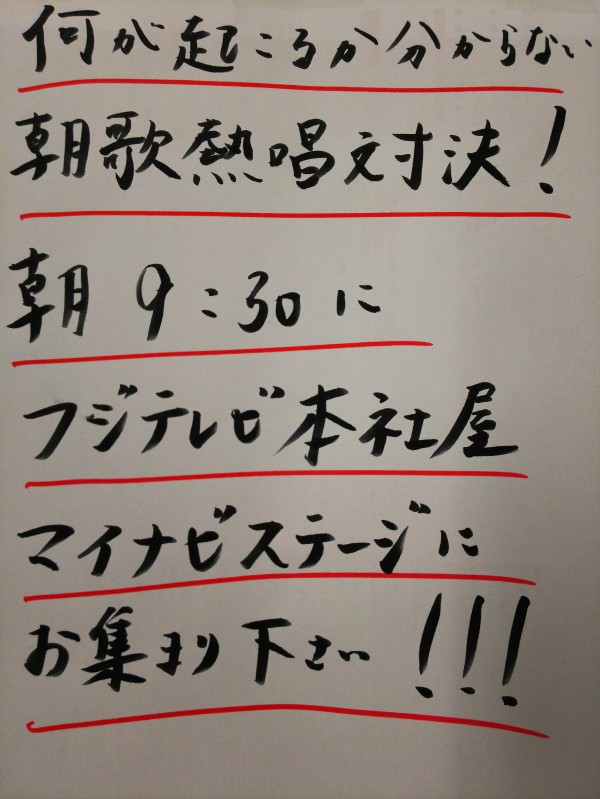 何が起こるか分からない
朝歌熱唱対決!
朝 9:30に
フジテレビ本社屋
マイナビステージに
お集まり下さい!!!